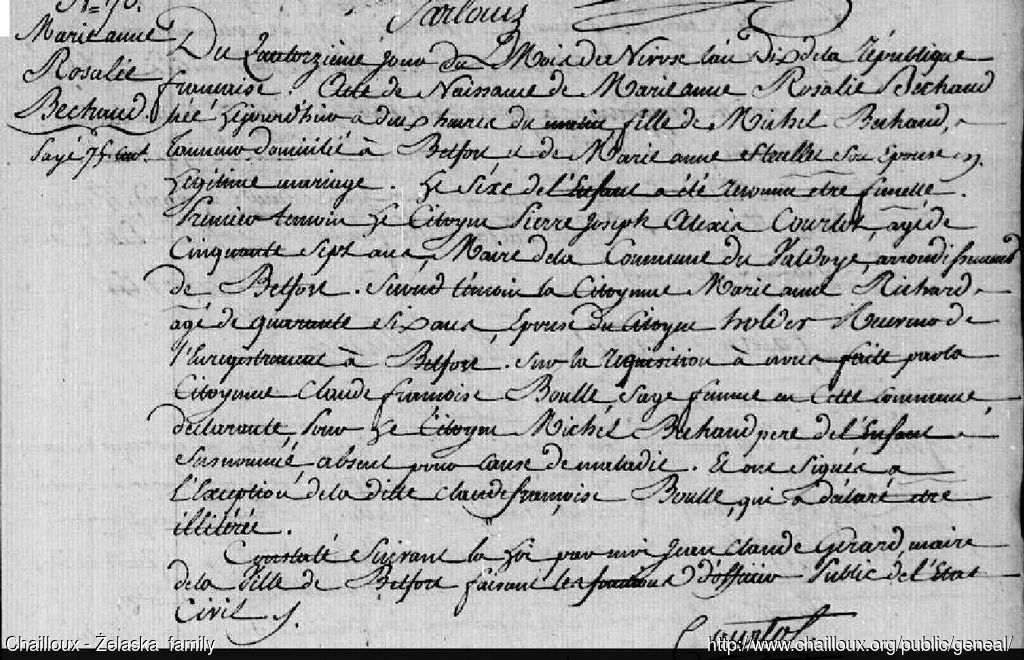 N.° 70.
Sarlouis
Marie anne
Rosalie
Bechaud.
Payé 75 cent.
Du Quatorzième jour du Mois de Nivose l'an Dix de la République
française. Acte de Naissance de Marie anne Rosalie Bechaud
née hejourdhuy a deux heures du matin, fille de Michel Bechaud,
tanneur domicilié à Belfort et de Marie anne Stoullet son Epouse en
Légitime mariage. Le sexe de l'Enfant a été reconnu etre fémelle.
Premier temoin Le Citoyen Pierre Joseph Alexis Courtot, agé de
Cinquante Sept ans, Maire de la Commune du Valdoye, arrondissement
de Belfort. Second témoin la Citoyenne Marie anne Richard
agé de quarante Six ans, Epouse du Citoyen Receveur de
l'Enregistrement à Belfort. Sur la requisition à nous faite par la
Citoyenne Claude françoise Boullé, Sage femme en Cette Commune,
déclarante, pour Le Citoyen Michel Bechaud pere de l'Enfant
Susnommé absent pour Cause de maladie. Et ont Signés a
l'Exception de la ditte Claude françoise Boullé, qui a déclaré etre
illitérée.
Constaté Suivant la Loi par moi Jean Claude Girard, maire
de la Ville de Belfort faisant les fonctions d'officier Public de l'Etat
Civil.
Courtot
Chailloux - Żelaska family
http://www.chailloux.org/public/geneal/